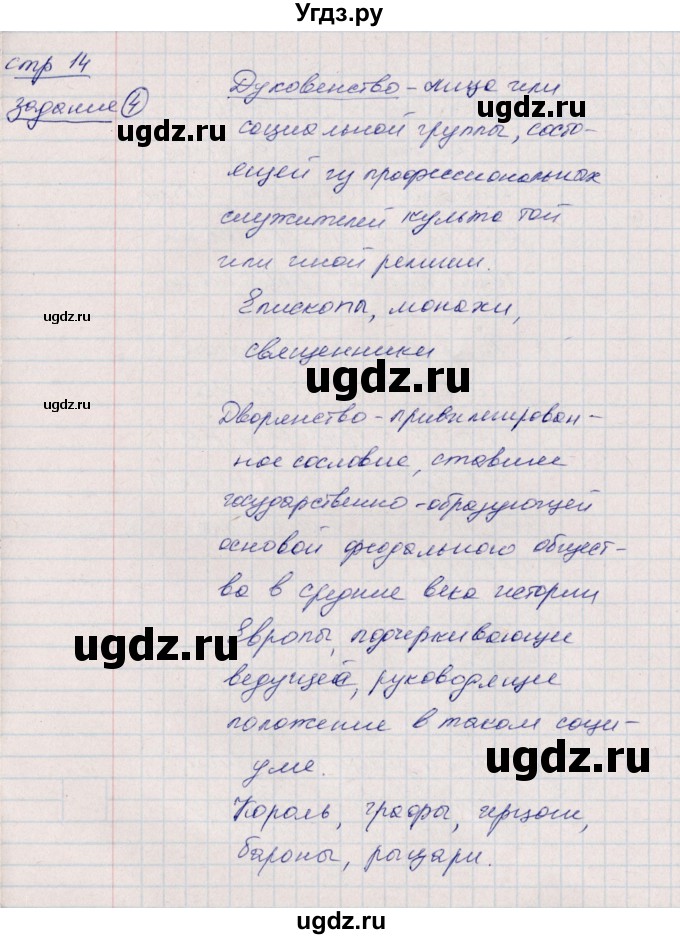 Угдз.ру
стр 14
задание 4
Духовенство - лица или
социальной группы, состо-
ящей из профессиональных
служителей культа той
или иной религии.
Епископы, монахи,
священники
Дворянство - привилегирован-
ное сословие, ставшее
государственно-образующей
основой феодального общест-
ва в средние века истории
Европы, подчеркивающие
ведущей, руководящие
положение в таком соци-
уме.
Король, графы, герцоги,
бароны, рыцари.
ugdz.ru
ugdz.ru
ugdz.ru
ugdz.ru
ugdz.ru
ugdz.ru
ugdz.ru
ugdz.ru
ugdz.ru